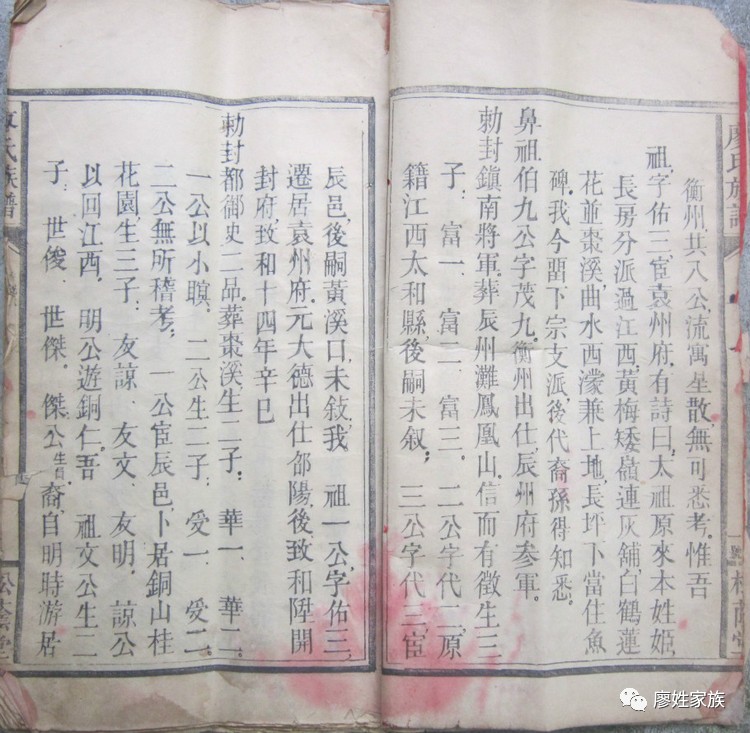 廖氏族譜
衡州，共八公，流寓星散，無可悉考，惟吾
祖，字佑三，宦袁州府，有詩曰，太祖原來本姓姬，
長房分派過江西，黃梅矮嶺連灰舖，白鶴蓮
花並棗溪，曲水西濛兼上地，長坪下當住魚
碑，我今畱下宗支派，後代裔孫得知悉。
鼻祖伯九公字茂九，衡州出仕，辰州府參軍。
勅封鎮南將軍，葬辰州灘鳳凰山，信而有徵生三
子，富一　富二　富三。二公字代二，原
籍江西太和縣，後嗣未叙；三公字代三宦
辰邑，後嗣黃溪口，未敍，我　祖一公，字佑三，
遷居袁州府，元大德出仕邵陽，後致和陞開
封府致和十四年辛巳
勅封都御史二品，葬棗溪，生二子：華一　華二，
一公以小瞑，二公生二子，愛一　愛二，
二公無所稽考；一公宦辰邑，卜居銅山桂
花園，生三子：友諒　友文　友明，諒公
以回江西，明公遊銅仁，吾　祖文公生二
子：世俊　世傑，傑公生昌裔，自明時游居
氏族譜
松蔭堂
廖姓家族